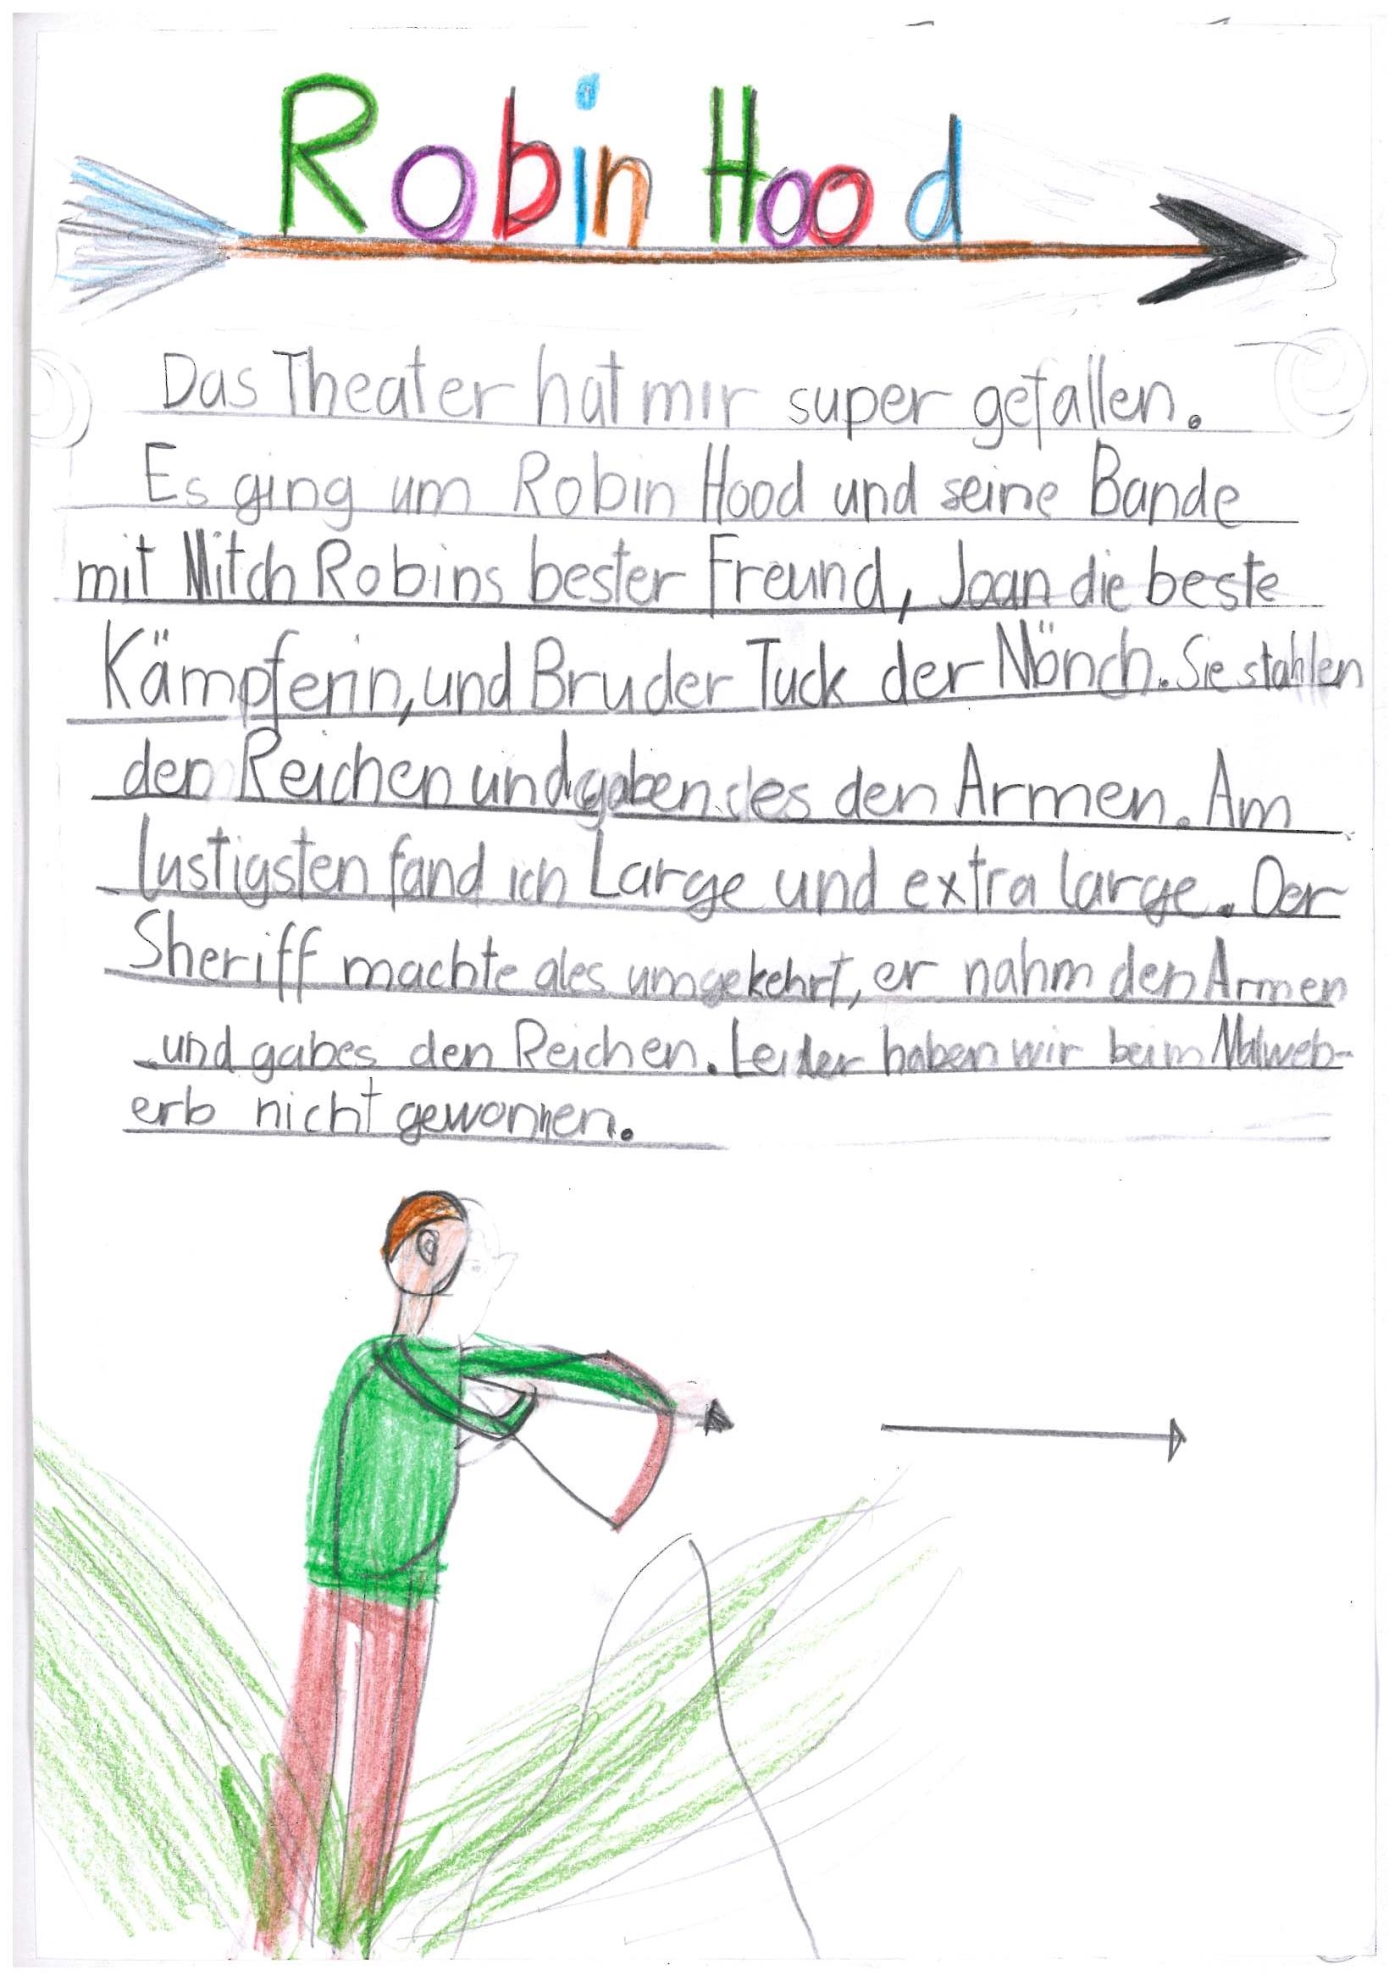 Robin Hood
Das Theater hat mir super gefallen.
Es ging um Robin Hood und seine Bande
mit Mitch Robins bester Freund, Joan die beste
Kämpferin, und Bruder Tuck der Mönch. Sie stahlen
den Reichen und gaben es den Armen. Am
lustigsten fand ich Large und extra large. Der
Sheriff machte ales umgekehrt, er nahm den Armen
und gabes den Reichen. Leider haben wir beim Malweb-
erb nicht gewonnen.